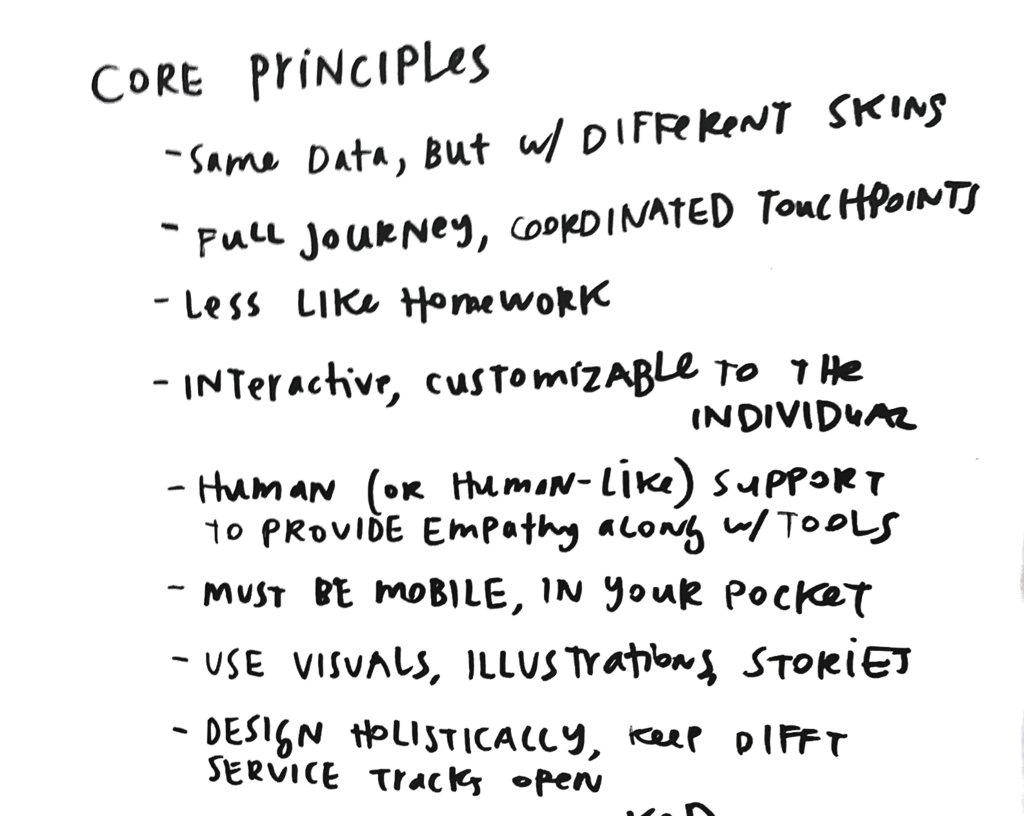 CORE PRINCIPLES
- SAME DATA, BUT w/ DIFFERENT SKINS
- FULL JOURNEY, COORDINATED TOUCHPOINTS
- LESS LIKE HOMEWORK
- INTERACTIVE, CUSTOMIZABLE TO THE
INDIVIDUAL
- HUMAN (OR HUMAN-LIKE) SUPPORT
TO PROVIDE EMPATHY ALONG w/ TOOLS
- MUST BE MOBILE, IN YOUR POCKET
- USE VISUALS, ILLUSTRATIONS, STORIES
- DESIGN HOLISTICALLY, KEEP DIFFT
SERVICE TRACKS OPEN